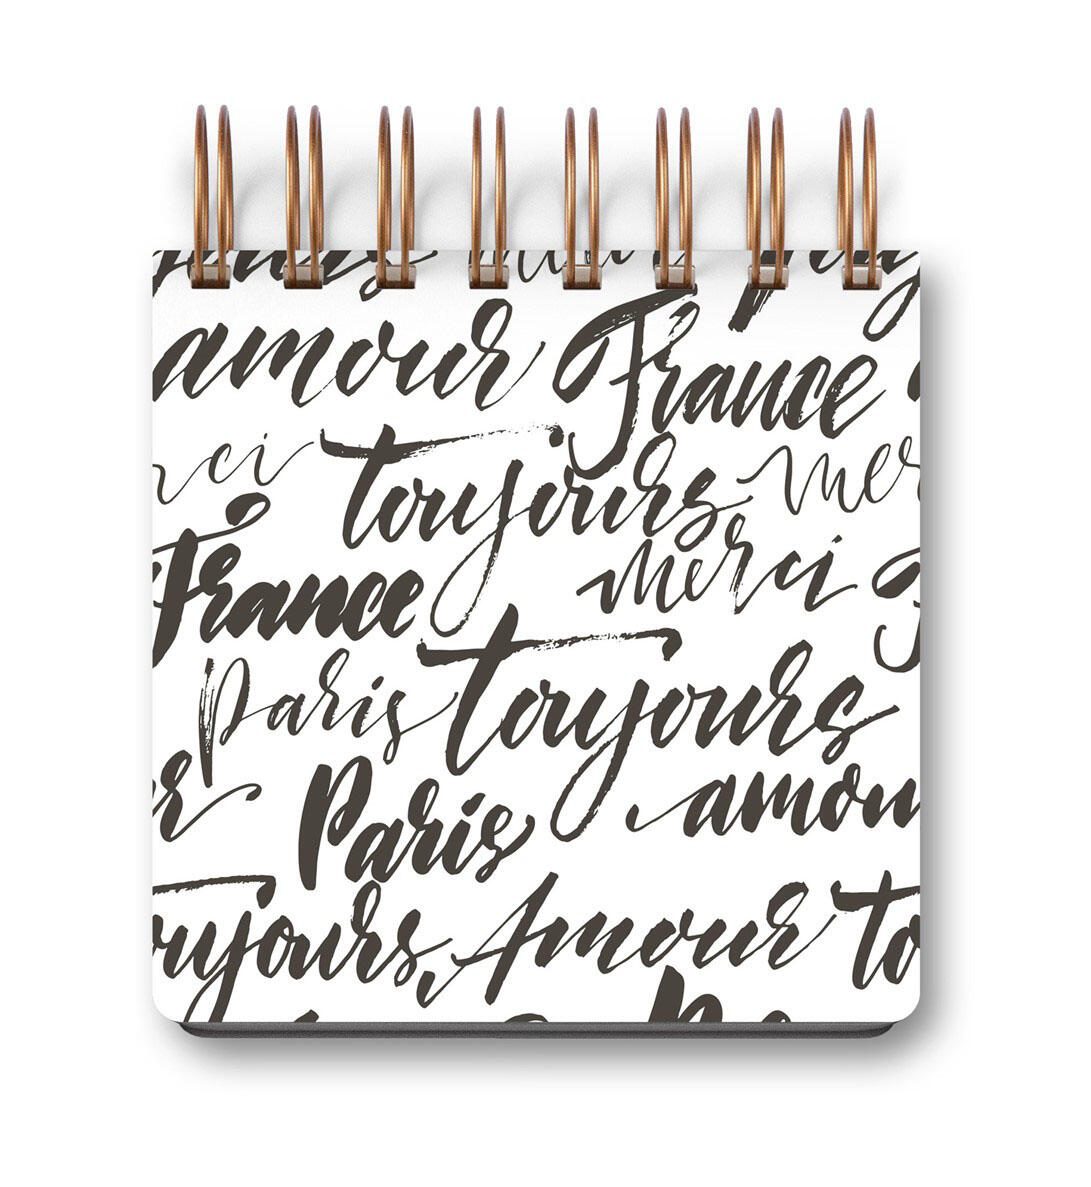 amour France
toujours mer
merci
France
Paris toujours
Paris amou
oujours, Amour to